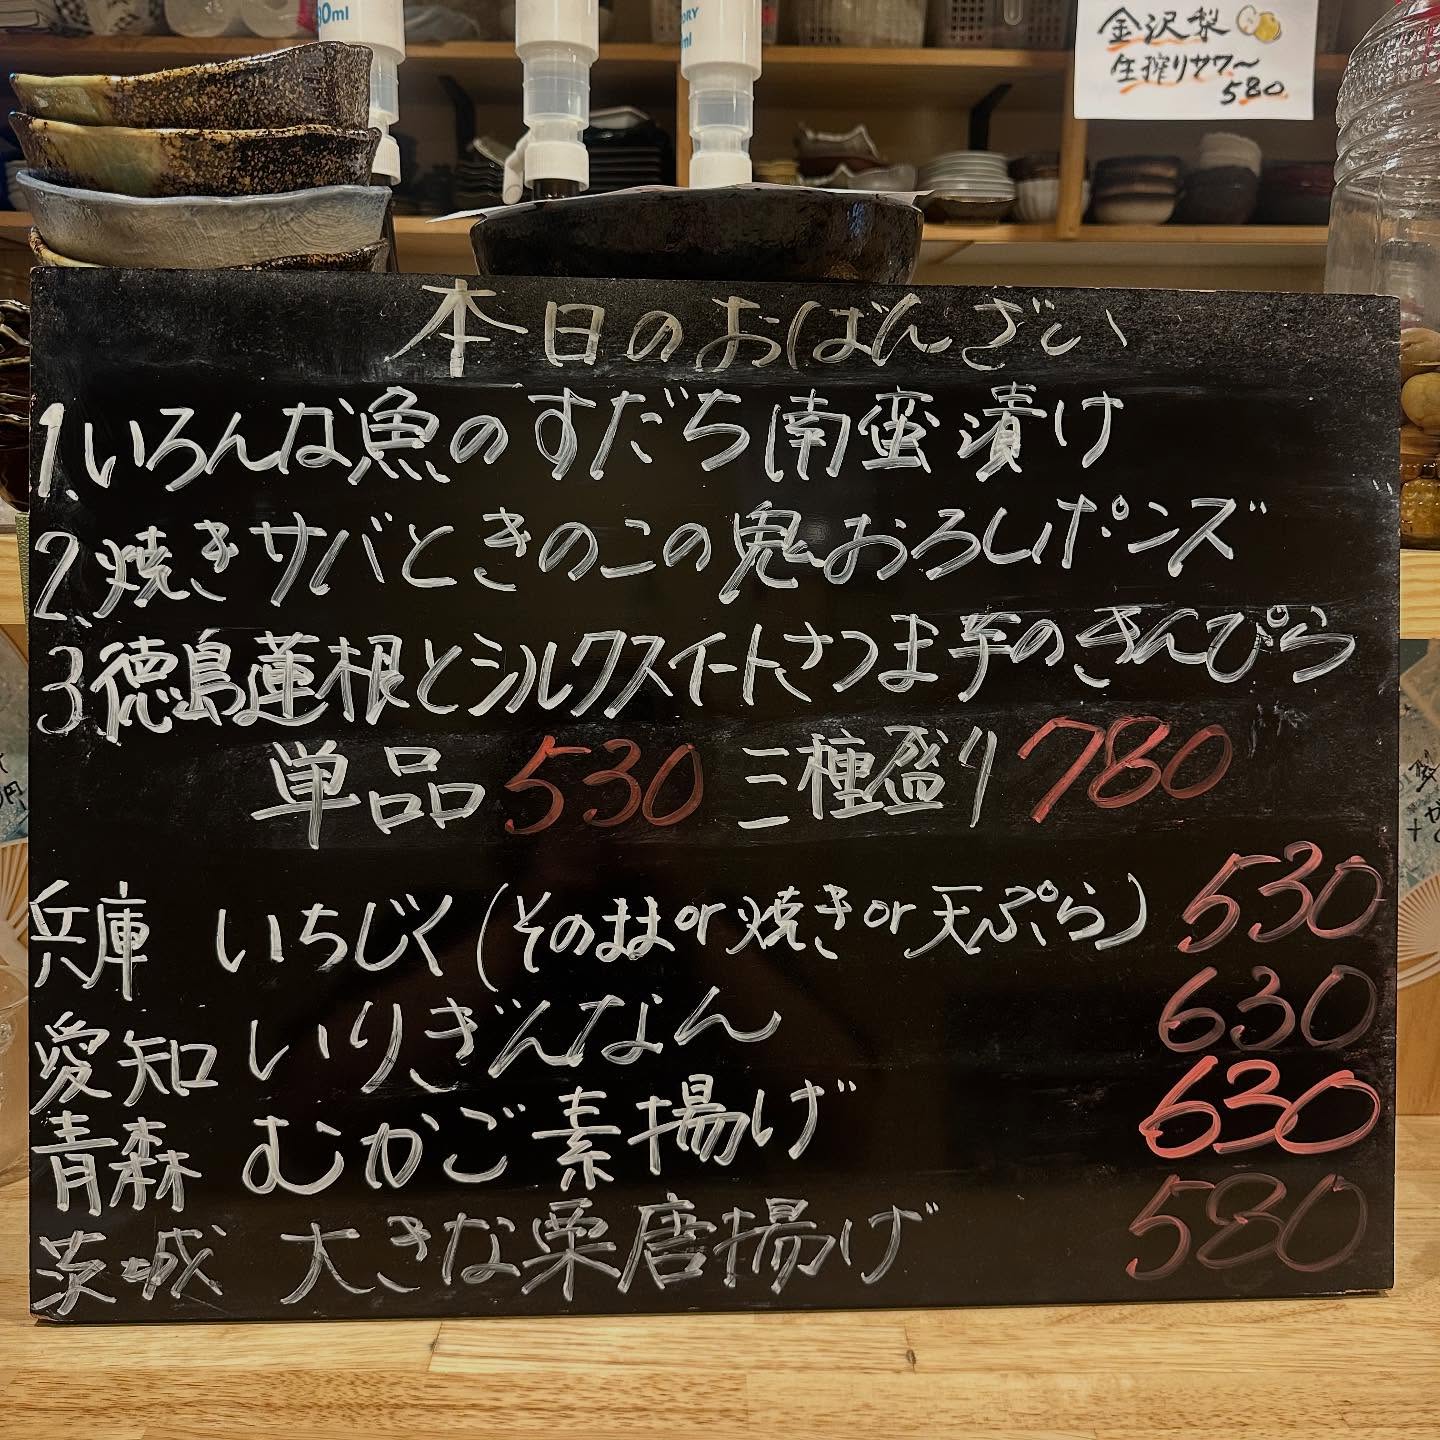 90ml
金沢梨
生搾りサワー
580
本日のおばんざい
1.いろんな魚のすだち南蛮漬け
2.焼きサバときのこの鬼おろしポンズ
3.徳島蓮根とシルクスイートさつま芋のきんぴら
単品 530 三種盛り 780
兵庫 いちじく(そのままor焼きor天ぷら) 530
愛知 いりぎんなん 630
青森 むかご素揚げ 630
茨城 大きな栗唐揚げ 580